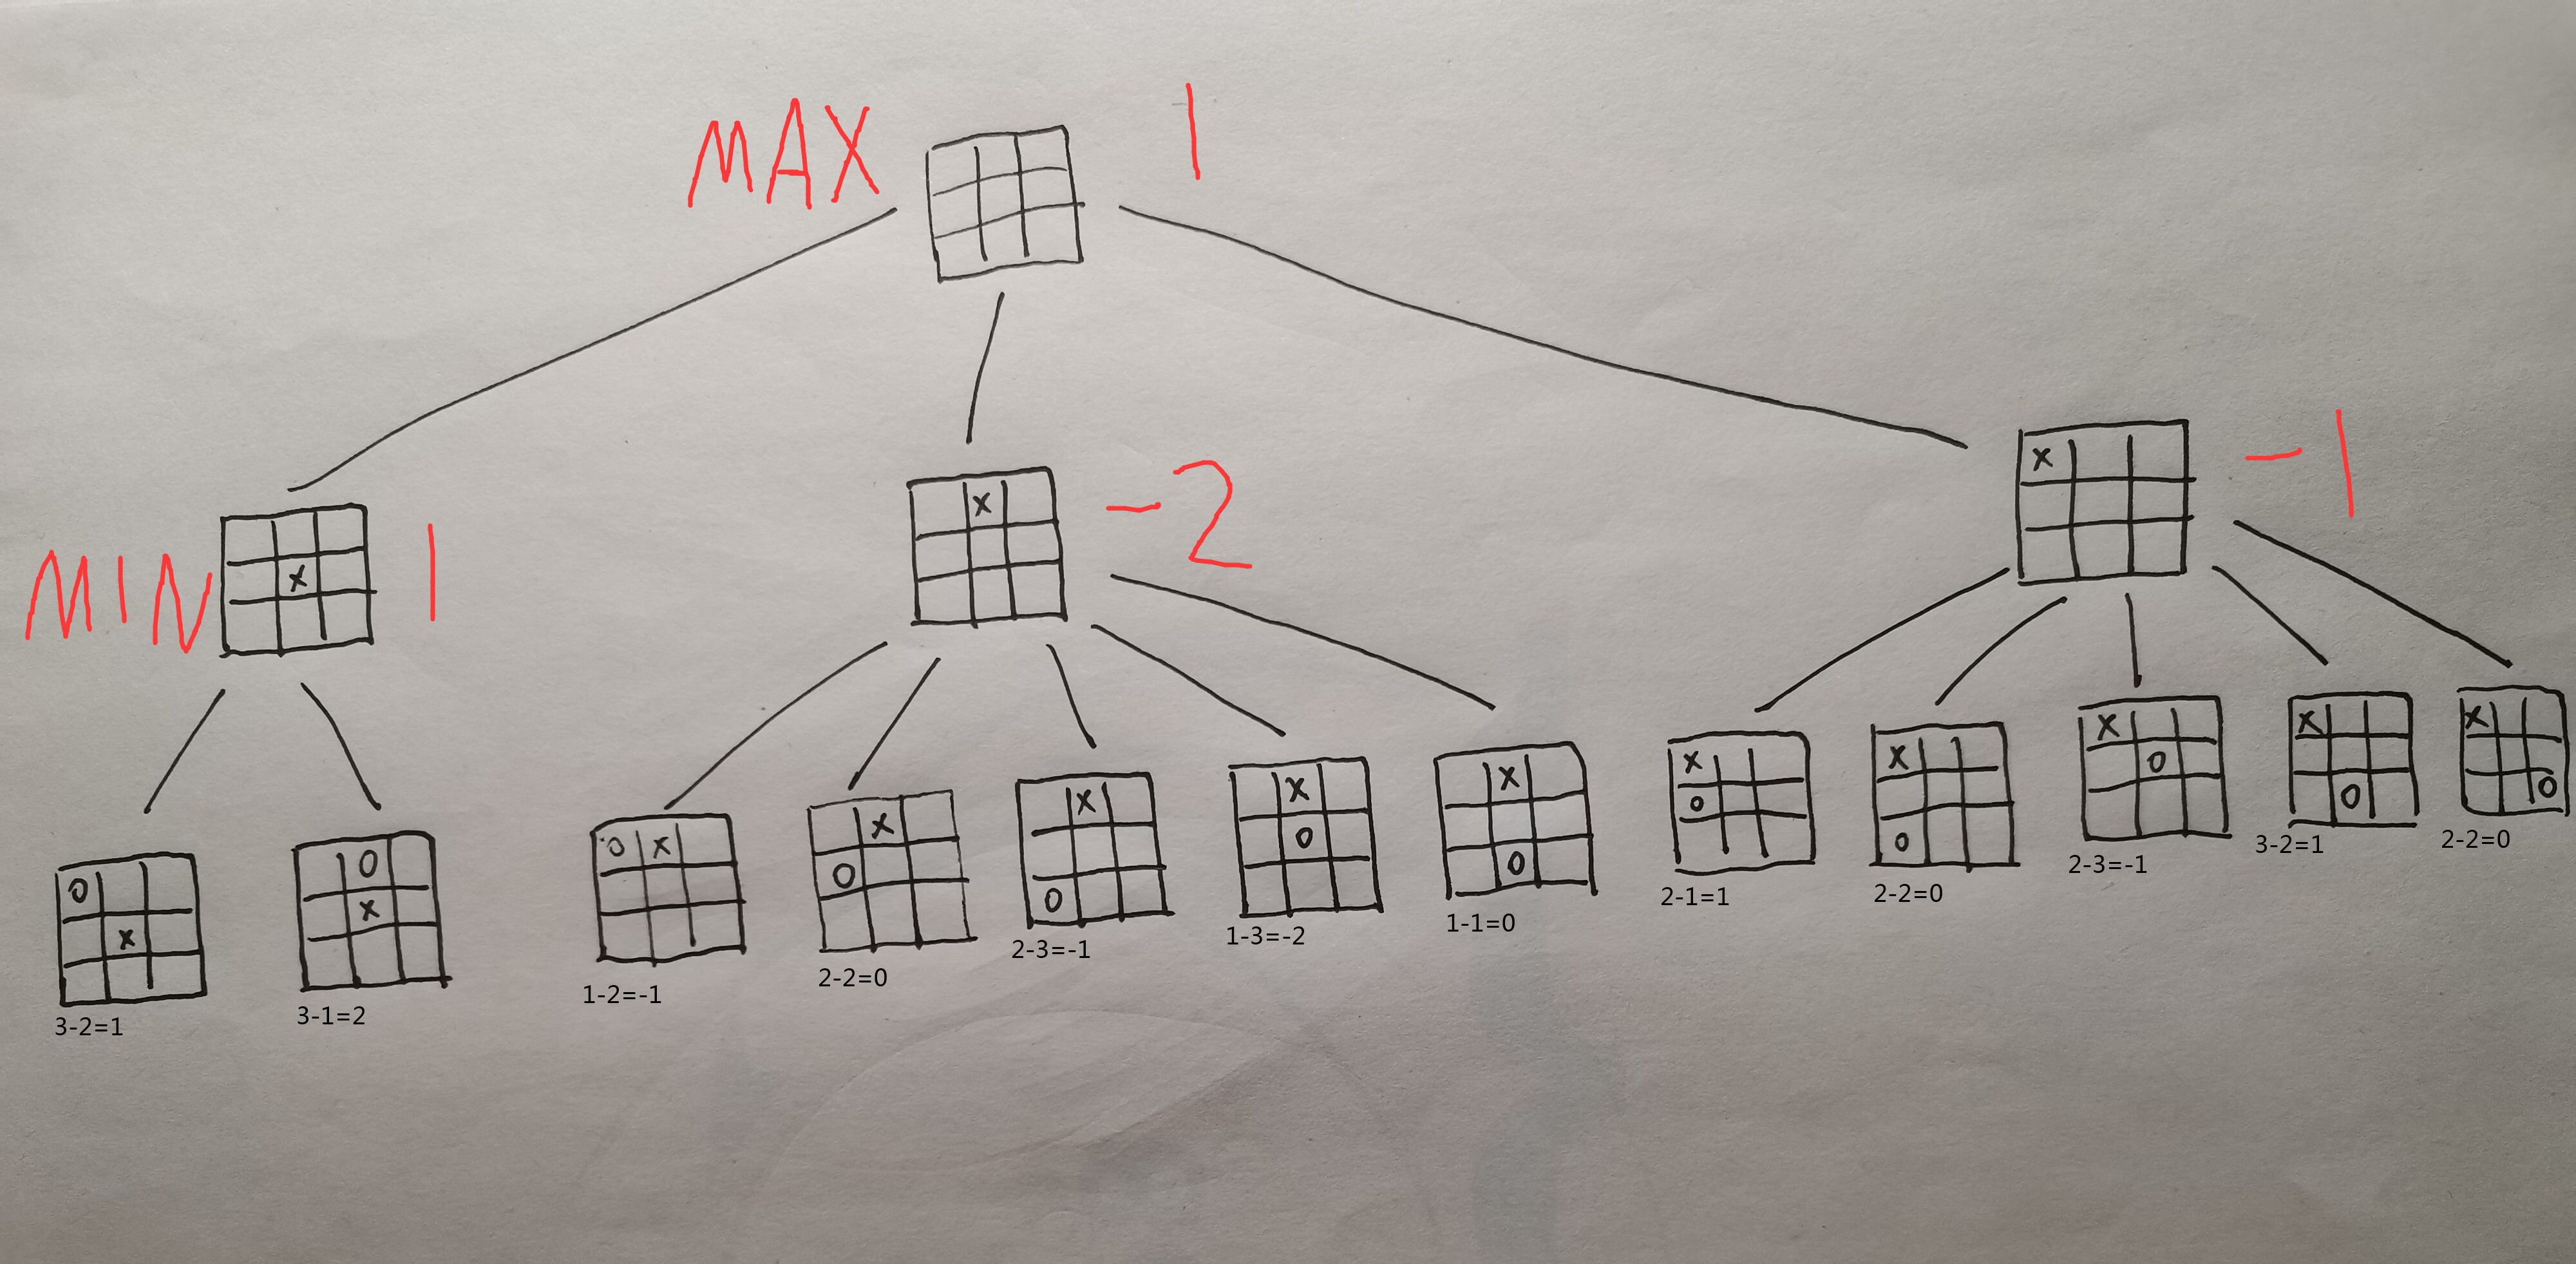 MAX 1
x
x
-2
x
-1
MIN 1
O
x
3-2=1
O
x
3-1=2
O x
1-2=-1
x
O
2-2=0
x
O
2-3=-1
x
O
1-3=-2
x
O
1-1=0
x
O
2-1=1
x
O
2-2=0
x
O
2-3=-1
x
O
3-2=1
x
O
2-2=0